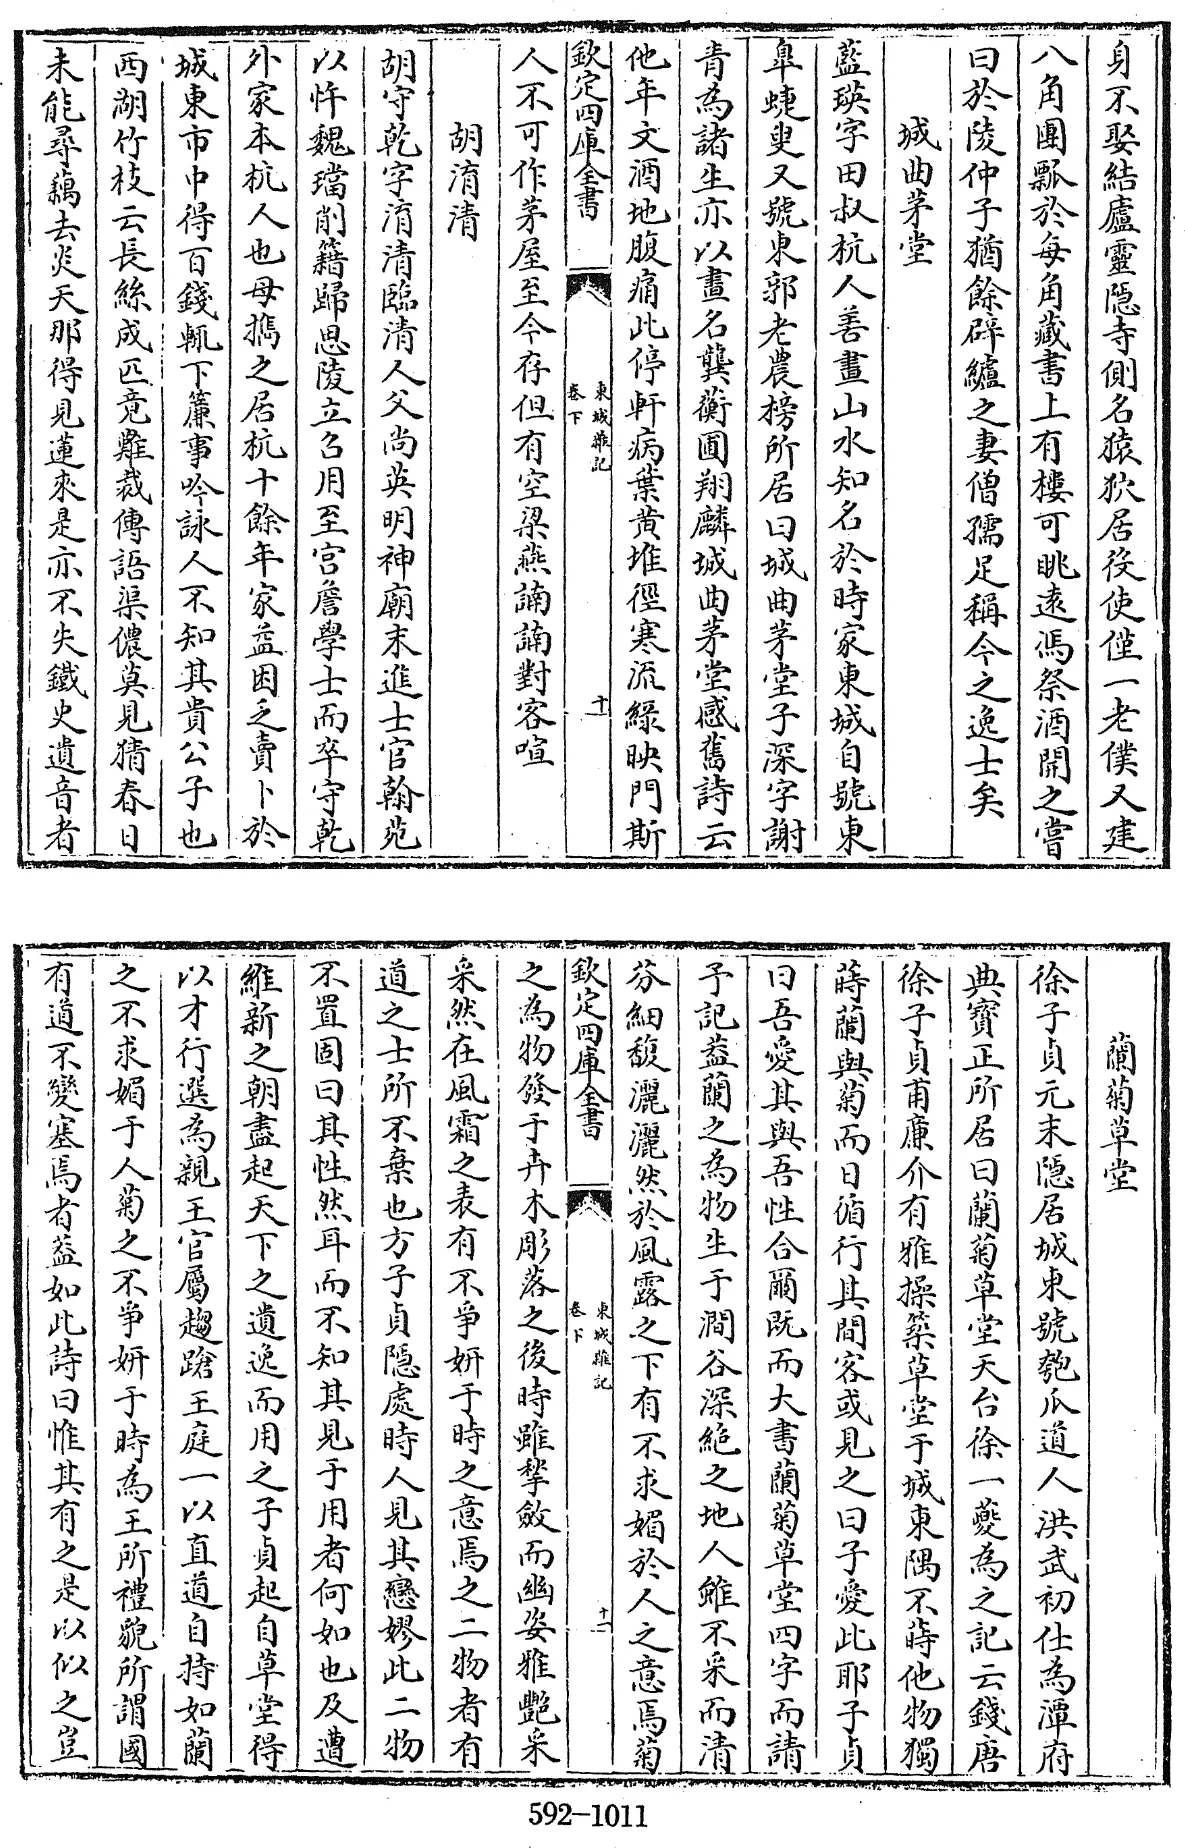 身不娶結廬靈隱寺側名猿狖居役使僅一老僕又建
八角團瓢於每角藏書上有樓可眺遠馮祭酒開之嘗
曰於陵仲子猶餘辟纑之妻僧孺足稱今之逸士矣
城曲茅堂
藍瑛字田叔杭人善畫山水知名於時家東城自號東
臯蜨叟又號東郭老農榜所居曰城曲茅堂子深字謝
青為諸生亦以畫名龔蘅圃翔麟城曲茅堂感舊詩云
他年文酒地腹痛此停軒病葉黄堆徑寒流緑映門斯
欽定四庫全書
東城雜記
卷下
十
人不可作茅屋至今存但有空梁燕諵諵對客喧
胡淯清
胡守乾字淯清臨清人父尚英明神廟末進士官翰苑
以忤魏璫削籍歸思陵立召用至宫詹學士而卒守乾
外家本杭人也母攜之居杭十餘年家益困乏賣卜於
城東市中得百錢輒下簾事吟詠人不知其貴公子也
西湖竹枝云長絲成匹竟難裁傳語渠儂莫見猜春日
未能尋藕去炎天那得見蓮來是亦不失鐵史遺音者
蘭菊草堂
徐子貞元末隱居城東號匏瓜道人洪武初仕為潭府
典寳正所居曰蘭菊草堂天台徐一夔為之記云錢唐
徐子貞甫廉介有雅操築草堂于城東隅不蒔他物獨
蒔蘭與菊而日循行其間客或見之曰子愛此耶子貞
曰吾愛其與吾性合爾既而大書蘭菊草堂四字而請
予記葢蘭之為物生于澗谷深絶之地人雖不采而清
芬細馥灑灑然於風露之下有不求媚於人之意焉菊
欽定四庫全書
東城雜記
卷下
十一
之為物發于卉木彫落之後時雖揫斂而幽姿雅艷采
采然在風霜之表有不爭妍于時之意焉之二物者有
道之士所不棄也方子貞隱處時人見其戀嫪此二物
不置固曰其性然耳而不知其見于用者何如也及遭
維新之朝盡起天下之遺逸而用之子貞起自草堂得
以才行選為親王官屬趨蹌王庭一以直道自持如蘭
之不求媚于人菊之不爭妍于時為王所禮貌所謂國
有道不變塞焉者葢如此詩曰惟其有之是以似之豈
592-1011